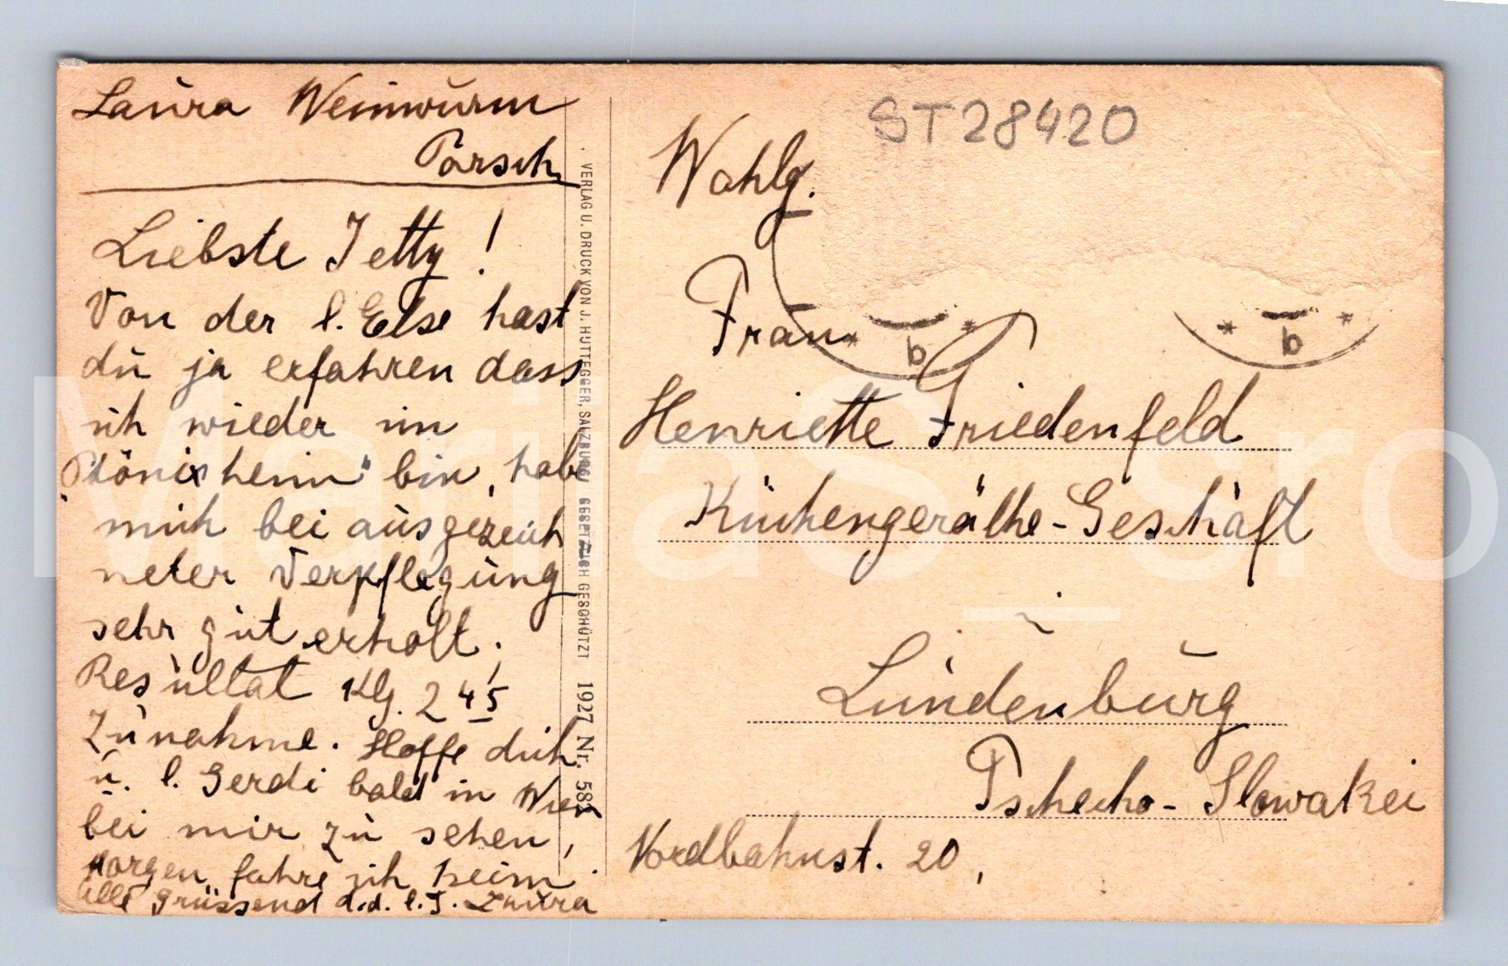 Laura Weinwurm
Porsch
Liebste Jetty!
Von der l. Else hast
du ja erfahren dass
ich wieder im
"Phönixheim" bin, habe
mich bei ausgezeich
neter Verpflegung
sehr gut erholt.
Resultat Klg. 2 45
Zunahme. Hoffe dich
u. l. Gerdi bald in Wien
bei mir zu sehen,
Morgen fahre ich heim.
Alle grüssend d. d. l. T. Laura
VERLAG U. DRUCK VON J. HUTTEGGER, SALZBURG. GESETZLICH GESCHÜTZT 1927 Nr.
ST28420
Wohlg.
Frau
* b *
* b *
Henriette Friedenfeld
Küchengeräthe-Geschäft
Lundenburg
Tschecho-Slowakei
Nordbahnst. 20,
MariaS_sro